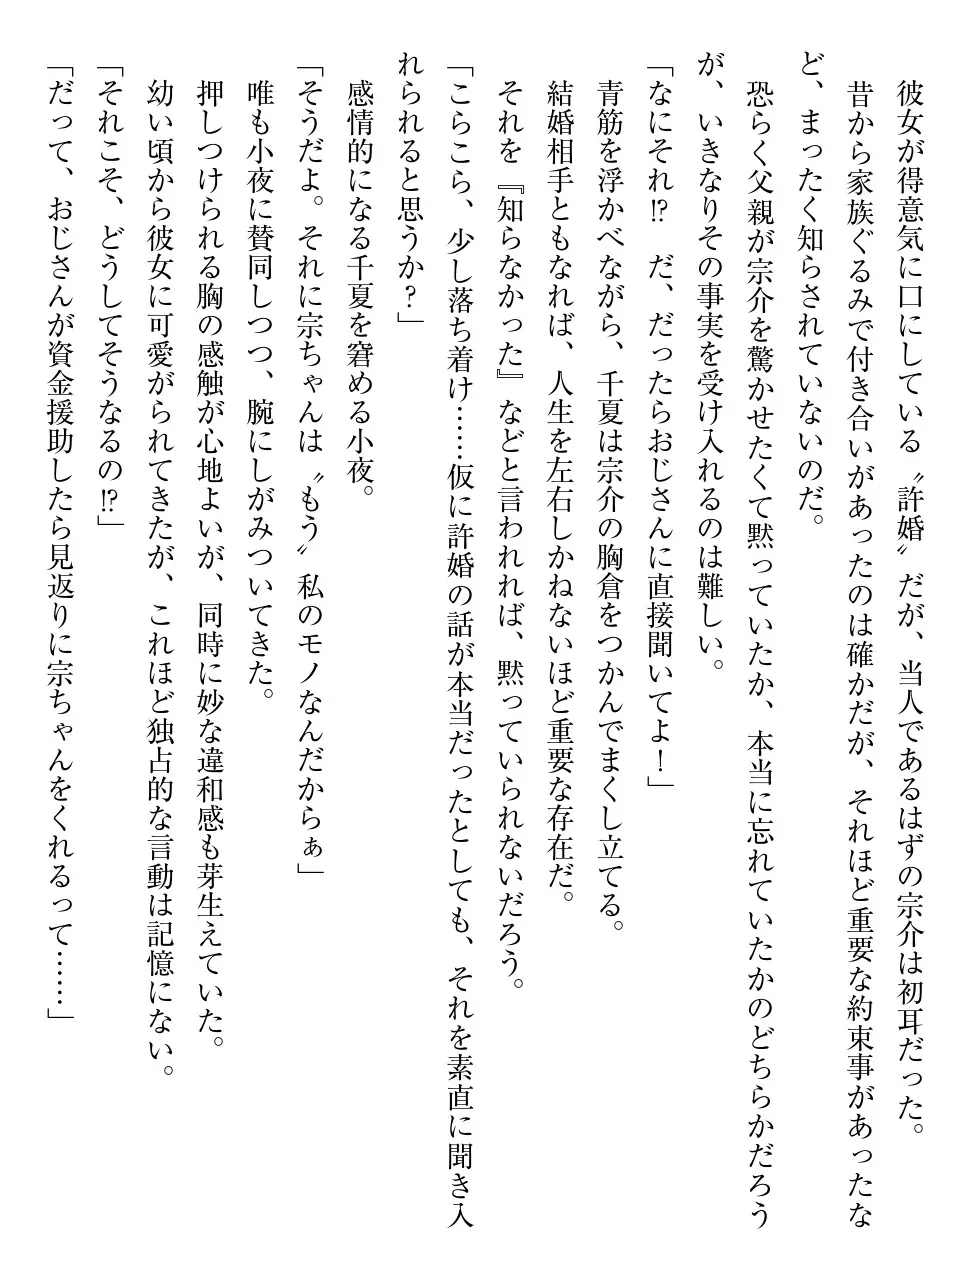 彼女が得意気に口にしている〝許婚〟だが、当人であるはずの宗介は初耳だった。
昔から家族ぐるみで付き合いがあったのは確かだが、それほど重要な約束事があったな
ど、まったく知らされていないのだ。
恐らく父親が宗介を驚かせたくて黙っていたか、本当に忘れていたかのどちらかだろう
が、いきなりその事実を受け入れるのは難しい。
「なにそれ⁉　だ、だったらおじさんに直接聞いてよ！」
青筋を浮かべながら、千夏は宗介の胸倉をつかんでまくし立てる。
結婚相手ともなれば、人生を左右しかねないほど重要な存在だ。
それを『知らなかった』などと言われれば、黙っていられないだろう。
「こらこら、少し落ち着け……仮に許婚の話が本当だったとしても、それを素直に聞き入
れられると思うか？」
感情的になる千夏を窘める小夜。
「そうだよ。それに宗ちゃんは〝もう〟私のモノなんだからぁ」
唯も小夜に賛同しつつ、腕にしがみついてきた。
押しつけられる胸の感触が心地よいが、同時に妙な違和感も芽生えていた。
幼い頃から彼女に可愛がられてきたが、これほど独占的な言動は記憶にない。
「それこそ、どうしてそうなるの⁉」
「だって、おじさんが資金援助したら見返りに宗ちゃんをくれるって……」